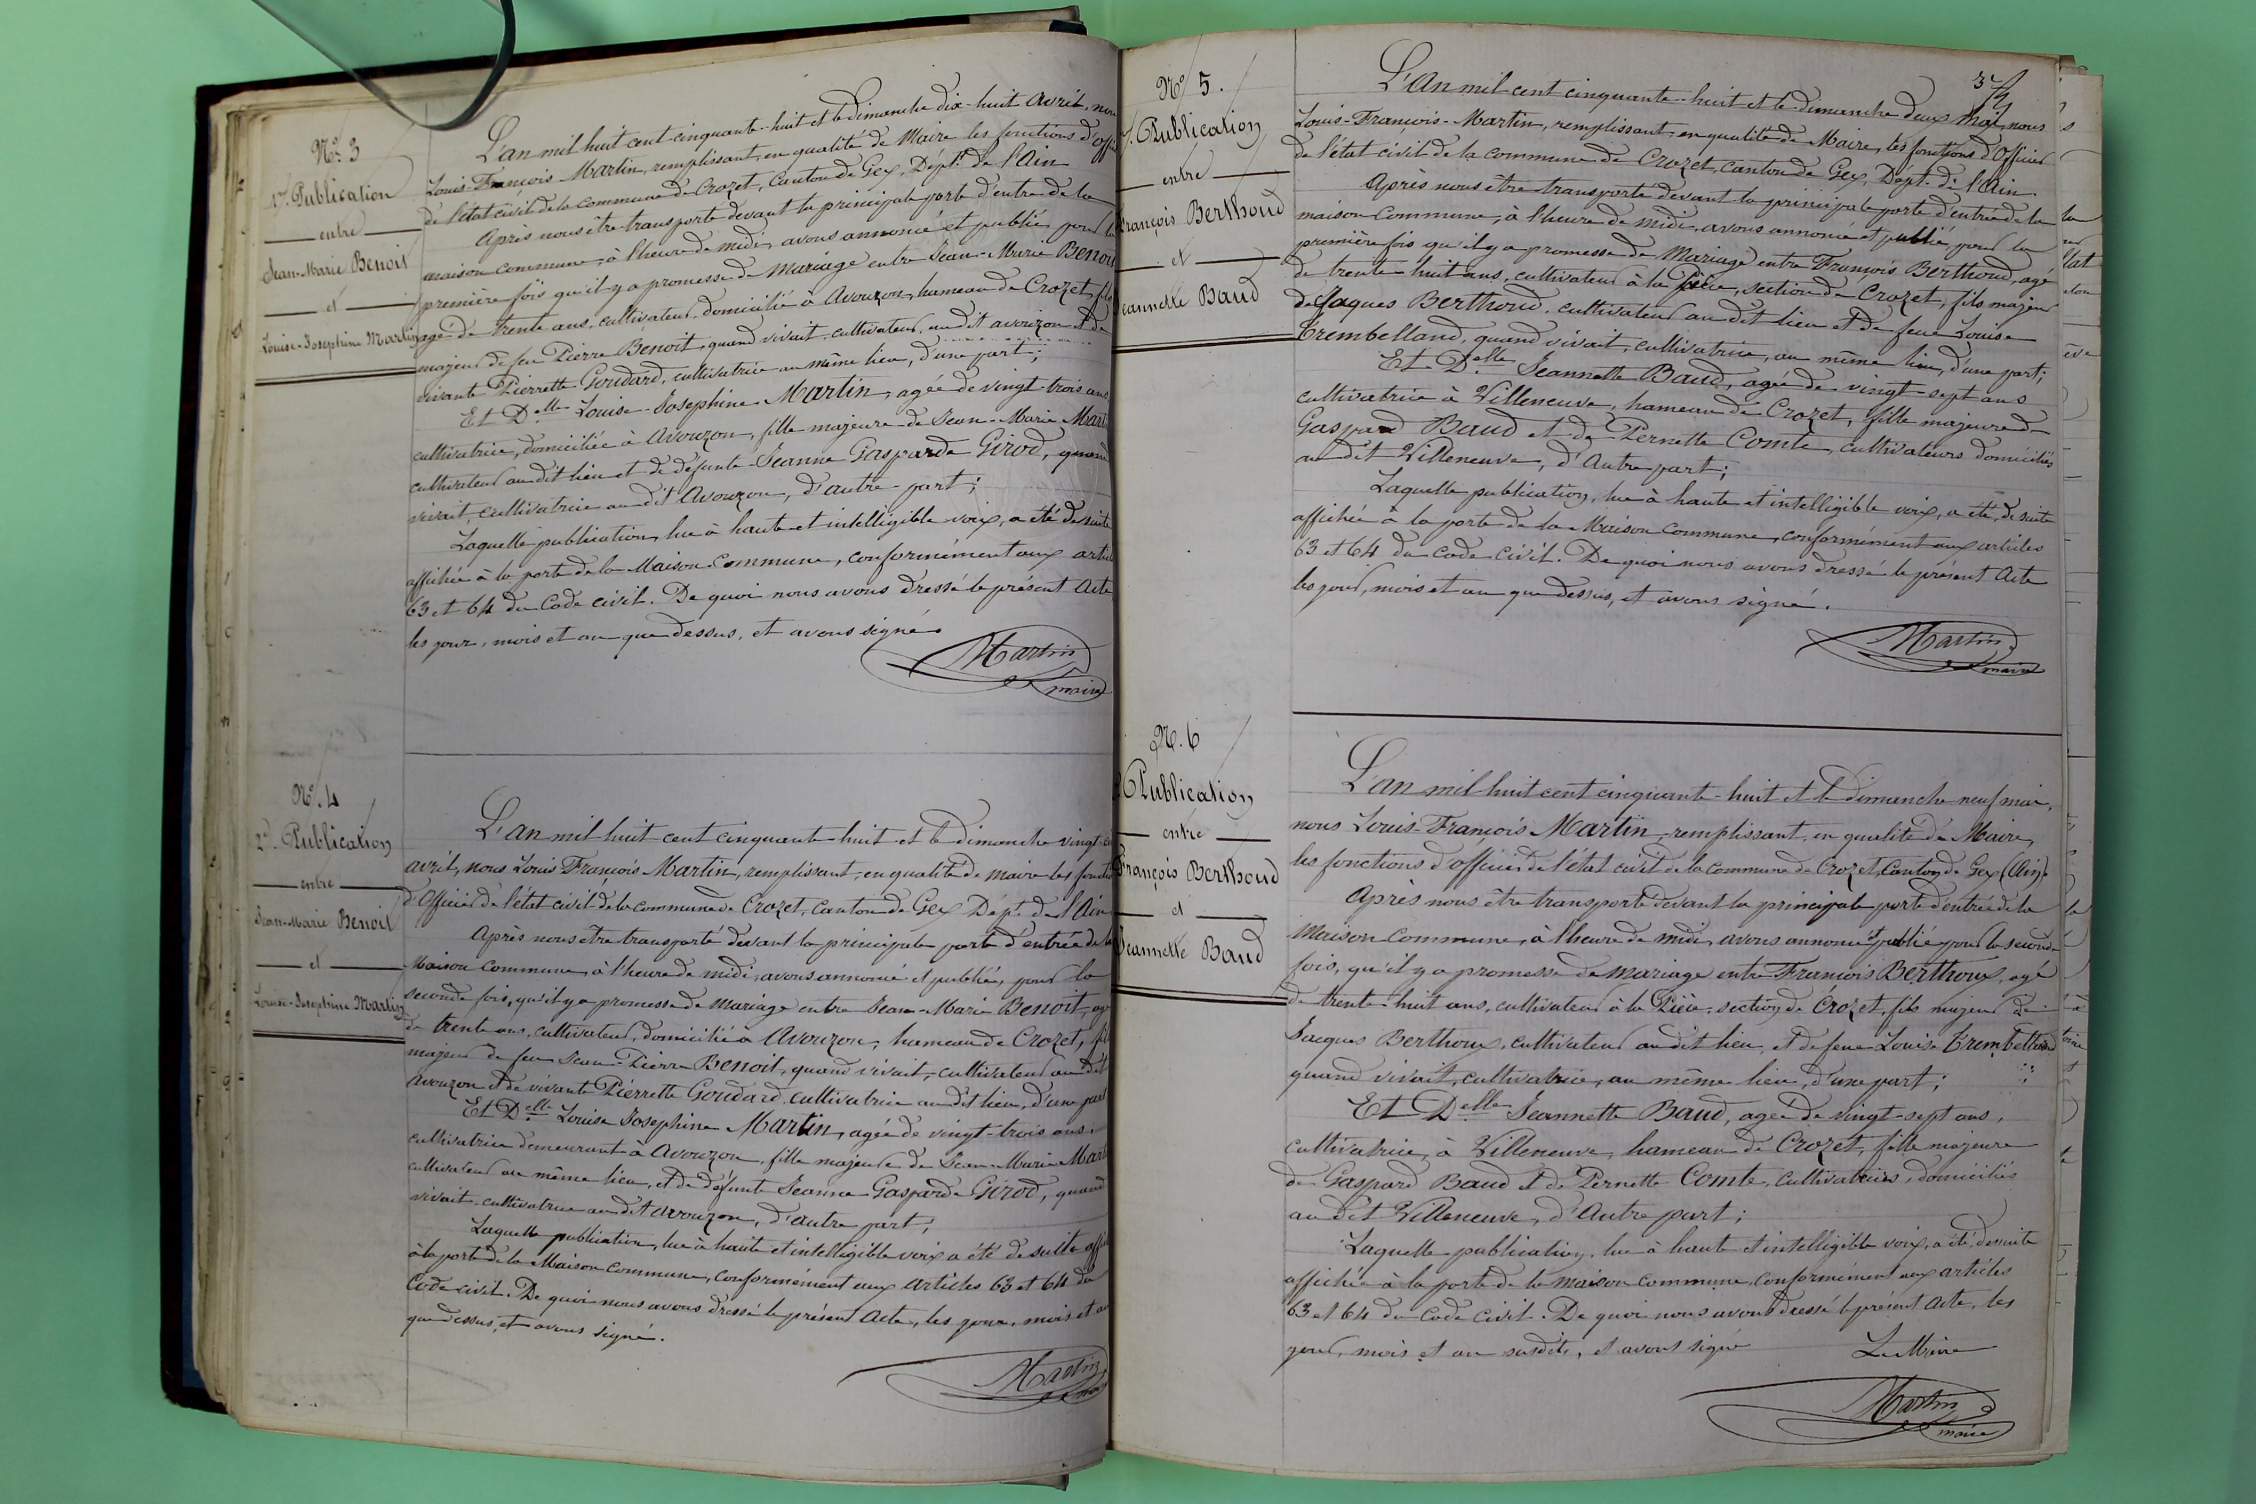 Nº 3
1re Publication
entre
Jean-Marie Benoit
et
Louise-Josephine Martin
L'an mil huit cent cinquante-huit et le dimanche dix-huit Avril, nous
Louis-François Martin, remplissant, en qualité de Maire les fonctions d'offi
de l'état civil de la commune de Crozet, Canton de Gex, Dépt. de l'Ain
Après nous être transporté devant la principale porte d'entrée de la
maison commune, à l'heure de midi, avons annoncé et publié, pour la
première fois qu'il y a promesse de Mariage entre Jean-Marie Benoit
agé de trente ans, cultivateur, domicilié à Avouzon, hameau de Crozet, fils
majeur de feu Pierre Benoit, quand vivait, cultivateur, au dit avouzon et de
vivante Pierrette Goudard, cultivatrice au même lieu, d'une part;
Et Delle Louise-Josephine Martin, agée de vingt-trois ans,
cultivatrice, domiciliée à Avouzon, fille majeure de Jean-Marie Mart
cultivateur au dit lieu et de défunte Jeanne Gasparde Girod, quand
vivait, cultivatrice au dit Avouzon, d'autre-part;
Laquelle publication, lue à haute et intelligible voix, a été de suite
affichée à la porte de la Maison Commune, conformément aux articl
63 et 64 du Code civil. De quoi nous avons dressé le présent Acte
les jour, mois et an que dessus, et avons signé.
Martin
maire
Nº. 4
2e. Publication
entre
Jean-Marie Benoit
et
Louise-Josephine Martin
L'an mil huit cent cinquante-huit et le dimanche vingt-ci
avril, nous Louis François Martin, remplissant, en qualité de maire les fonct
d'Officier de l'état civil de la commune de Crozet, Canton de Gex Dépt. de l'Ain
Après nous être transporté devant la principale porte d'entrée de la
Maison commune à l'heure de midi, avons annoncé et publié, pour la
seconde fois, qu'il y a promesse de mariage entre Jean-Marie Benoit, agé
de trente ans, cultivateur, domicilié à Avouzon, hameau de Crozet, fils
majeur de feu Jean-Pierre Benoit, quand vivait, cultivateur au dit
Avouzon et de vivante Pierrette Goudard, cultivatrice au dit lieu, d'une part
Et Delle Louise Josephine Martin, agée de vingt-trois ans,
cultivatrice demeurant à Avouzon, fille majeure de Jean-Marie Mart
cultivateur au même lieu, et de défunte Jeanne Gasparde Girod, quand
vivait, cultivatrice au dit avouzon, d'autre part;
Laquelle publication, lue à haute et intelligible voix a été de suite affi
à la porte de la Maison commune, conformément aux articles 63 et 64 du
Code civil. De quoi nous avons dressé le présent Acte, les jour, mois et an
que dessus, et avons signé.
Martin
maire
Nº 5.
Publication
entre
François Berthoud
et
Jeannette Baud
3
L'An mil cent cinquante-huit et le dimanche deux Mai, nous
Louis-François-Martin, remplissant, en qualité de Maire, les fonctions d'Officier
de l'état civil de la commune de Crozet, canton de Gex, Dépt. de l'Ain
Après nous être transporté devant la principale porte d'entrée de la
maison Commune, à l'heure de midi, avons annoncé et publié, pour la
première fois qu'il y a promesse de Mariage entre François Berthoud, agé
de trente-huit ans, cultivateur à la Pièce, section de Crozet, fils majeur
de Jaques Berthoud, cultivateur au dit lieu et de feue Louise
Trembelland, quand vivait, cultivatrice, au même lieu, d'une part;
Et Delle Jeannette Baud, agée de vingt sept ans
cultivatrice à Villeneuve, hameau de Crozet, fille majeure de
Gaspard Baud et de Pernette Comte, cultivateurs domiciliés
au dit Villeneuve, d'Autre part;
Laquelle publication, lue à haute et intelligible voix, a été, de suite
affichée à la porte de la Maison commune, conformément aux articles
63 et 64 du code civil. De quoi nous avons dressé le présent Acte
les jour, mois et an que dessus, et avons signé.
Martin
maire
Nº. 6
Publication
entre
François Berthoud
et
Jeannette Baud
L'an mil huit cent cinquante-huit et le Dimanche neuf mai,
nous Louis-François Martin, remplissant, en qualité de Maire,
les fonctions d'officier de l'état civil de la commune de Crozet, Canton de Gex (Ain).
Après nous être transporté devant la principale porte d'entrée de la
Maison Commune, à l'heure de midi, avons annoncé et publié pour la seconde
fois, qu'il y a promesse de mariage entre François Berthoux, agé
de trente-huit ans, cultivateur à la Pièce, section de Crozet, fils majeur de
Jacques Berthoux, cultivateur au dit lieu, et de feue Louise Trembelland
quand vivait, cultivatrice, au même lieu, d'une part;
Et Delle Jeannette Baud, agée de vingt-sept ans,
cultivatrice, à Villeneuve, hameau de Crozet, fille majeure
de Gaspard Baud et de Pernette Comte, Cultivateurs, domiciliés
au dit Villeneuve, d'Autre part;
Laquelle publication, lue à haute et intelligible voix, a été, de suite
affichée à la porte de la maison commune, conformément aux articles
63 et 64 du Code Civil. De quoi nous avons dressé le présent Acte, les
jour, mois et an susdits, et avons signé
Le Maire
Martin
maire